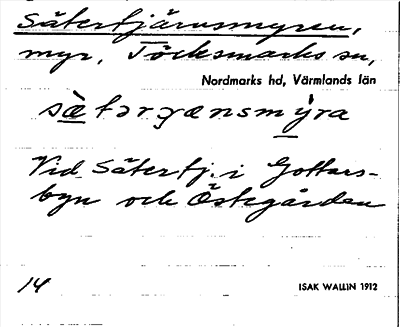 Sätertjärnsmyren,
myr, Töcksmarks sn,
Nordmarks hd, Värmlands län
sæ̀tərçænsmýra
Vid Sätertj. i Gottars-
byn och Östegården
14
ISAK WALLIN 1912